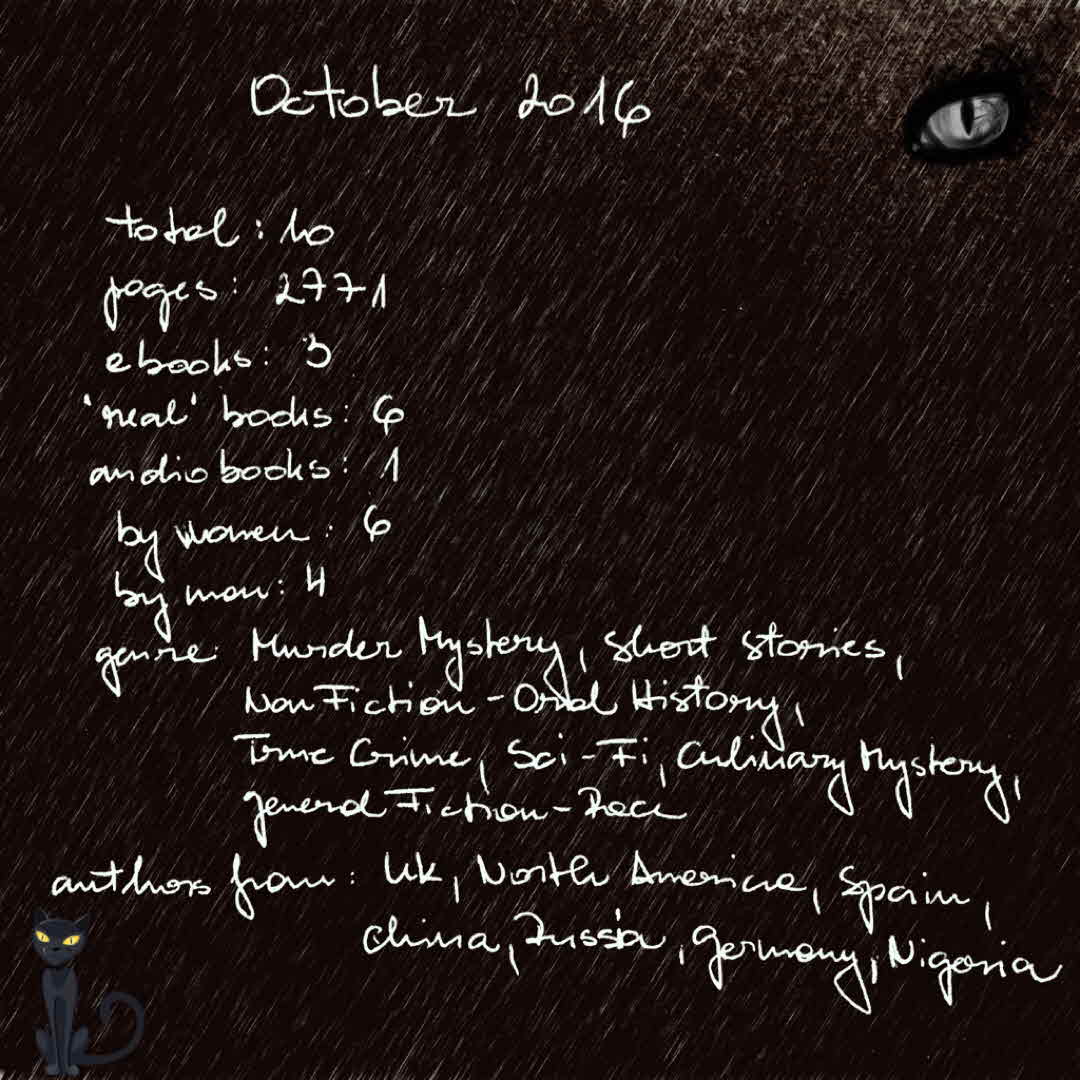 October 2016
total: 10
pages: 2771
ebooks: 3
'real' books: 6
audiobooks: 1
by women: 6
by men: 4
genre: Murder Mystery, Short Stories,
Non Fiction - Oral History,
True Crime, Sci-Fi, Culinary Mystery,
general Fiction - Race
authors from: UK, North America, Spain,
China, Russia, Germany, Nigeria